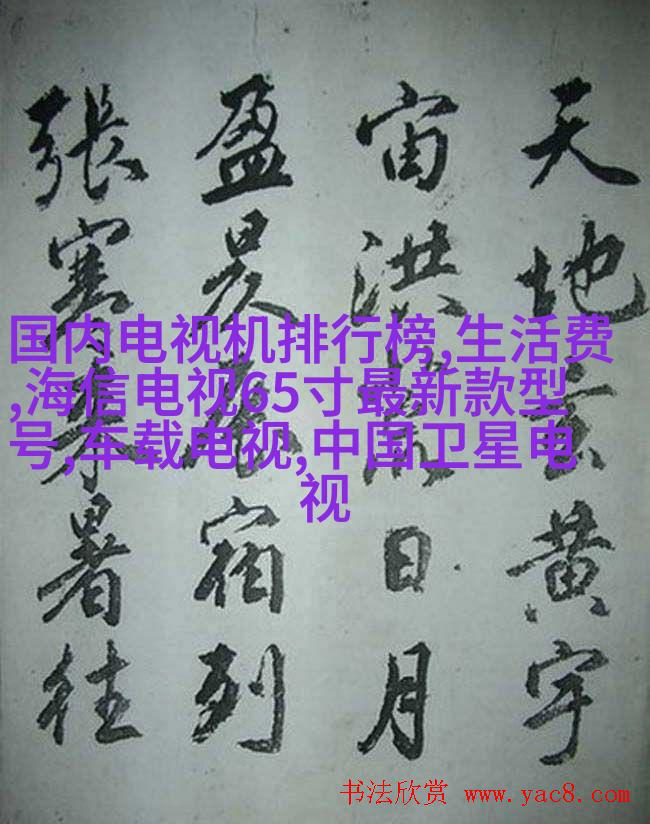 天地玄黄宇
宙洪荒日月
盈昃辰宿列
張寒来暑往
国内电视机排行榜,生活费
,海信电视65寸最新款型
号,车载电视,中国卫星电
视
书法欣赏 www.yac8.com